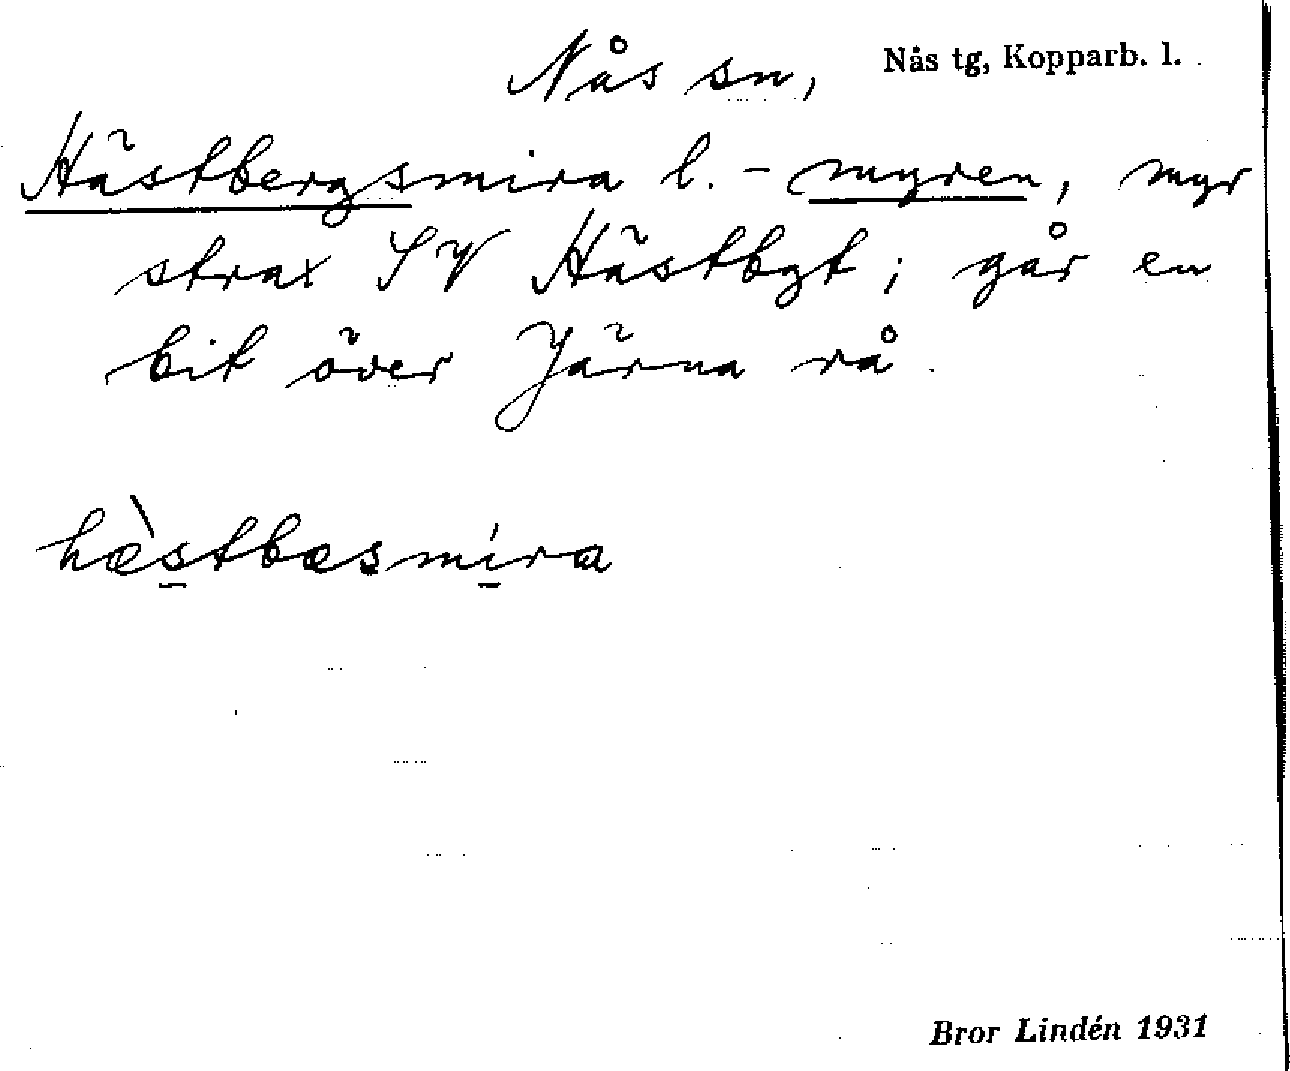 Nås sn, Nås tg, Kopparb. l.
Hästbergsmira l. -myren, myr
strax SV Hästbgt; går en
bit över Järna rå.
hæ̀stbæsmíra
Bror Lindén 1931